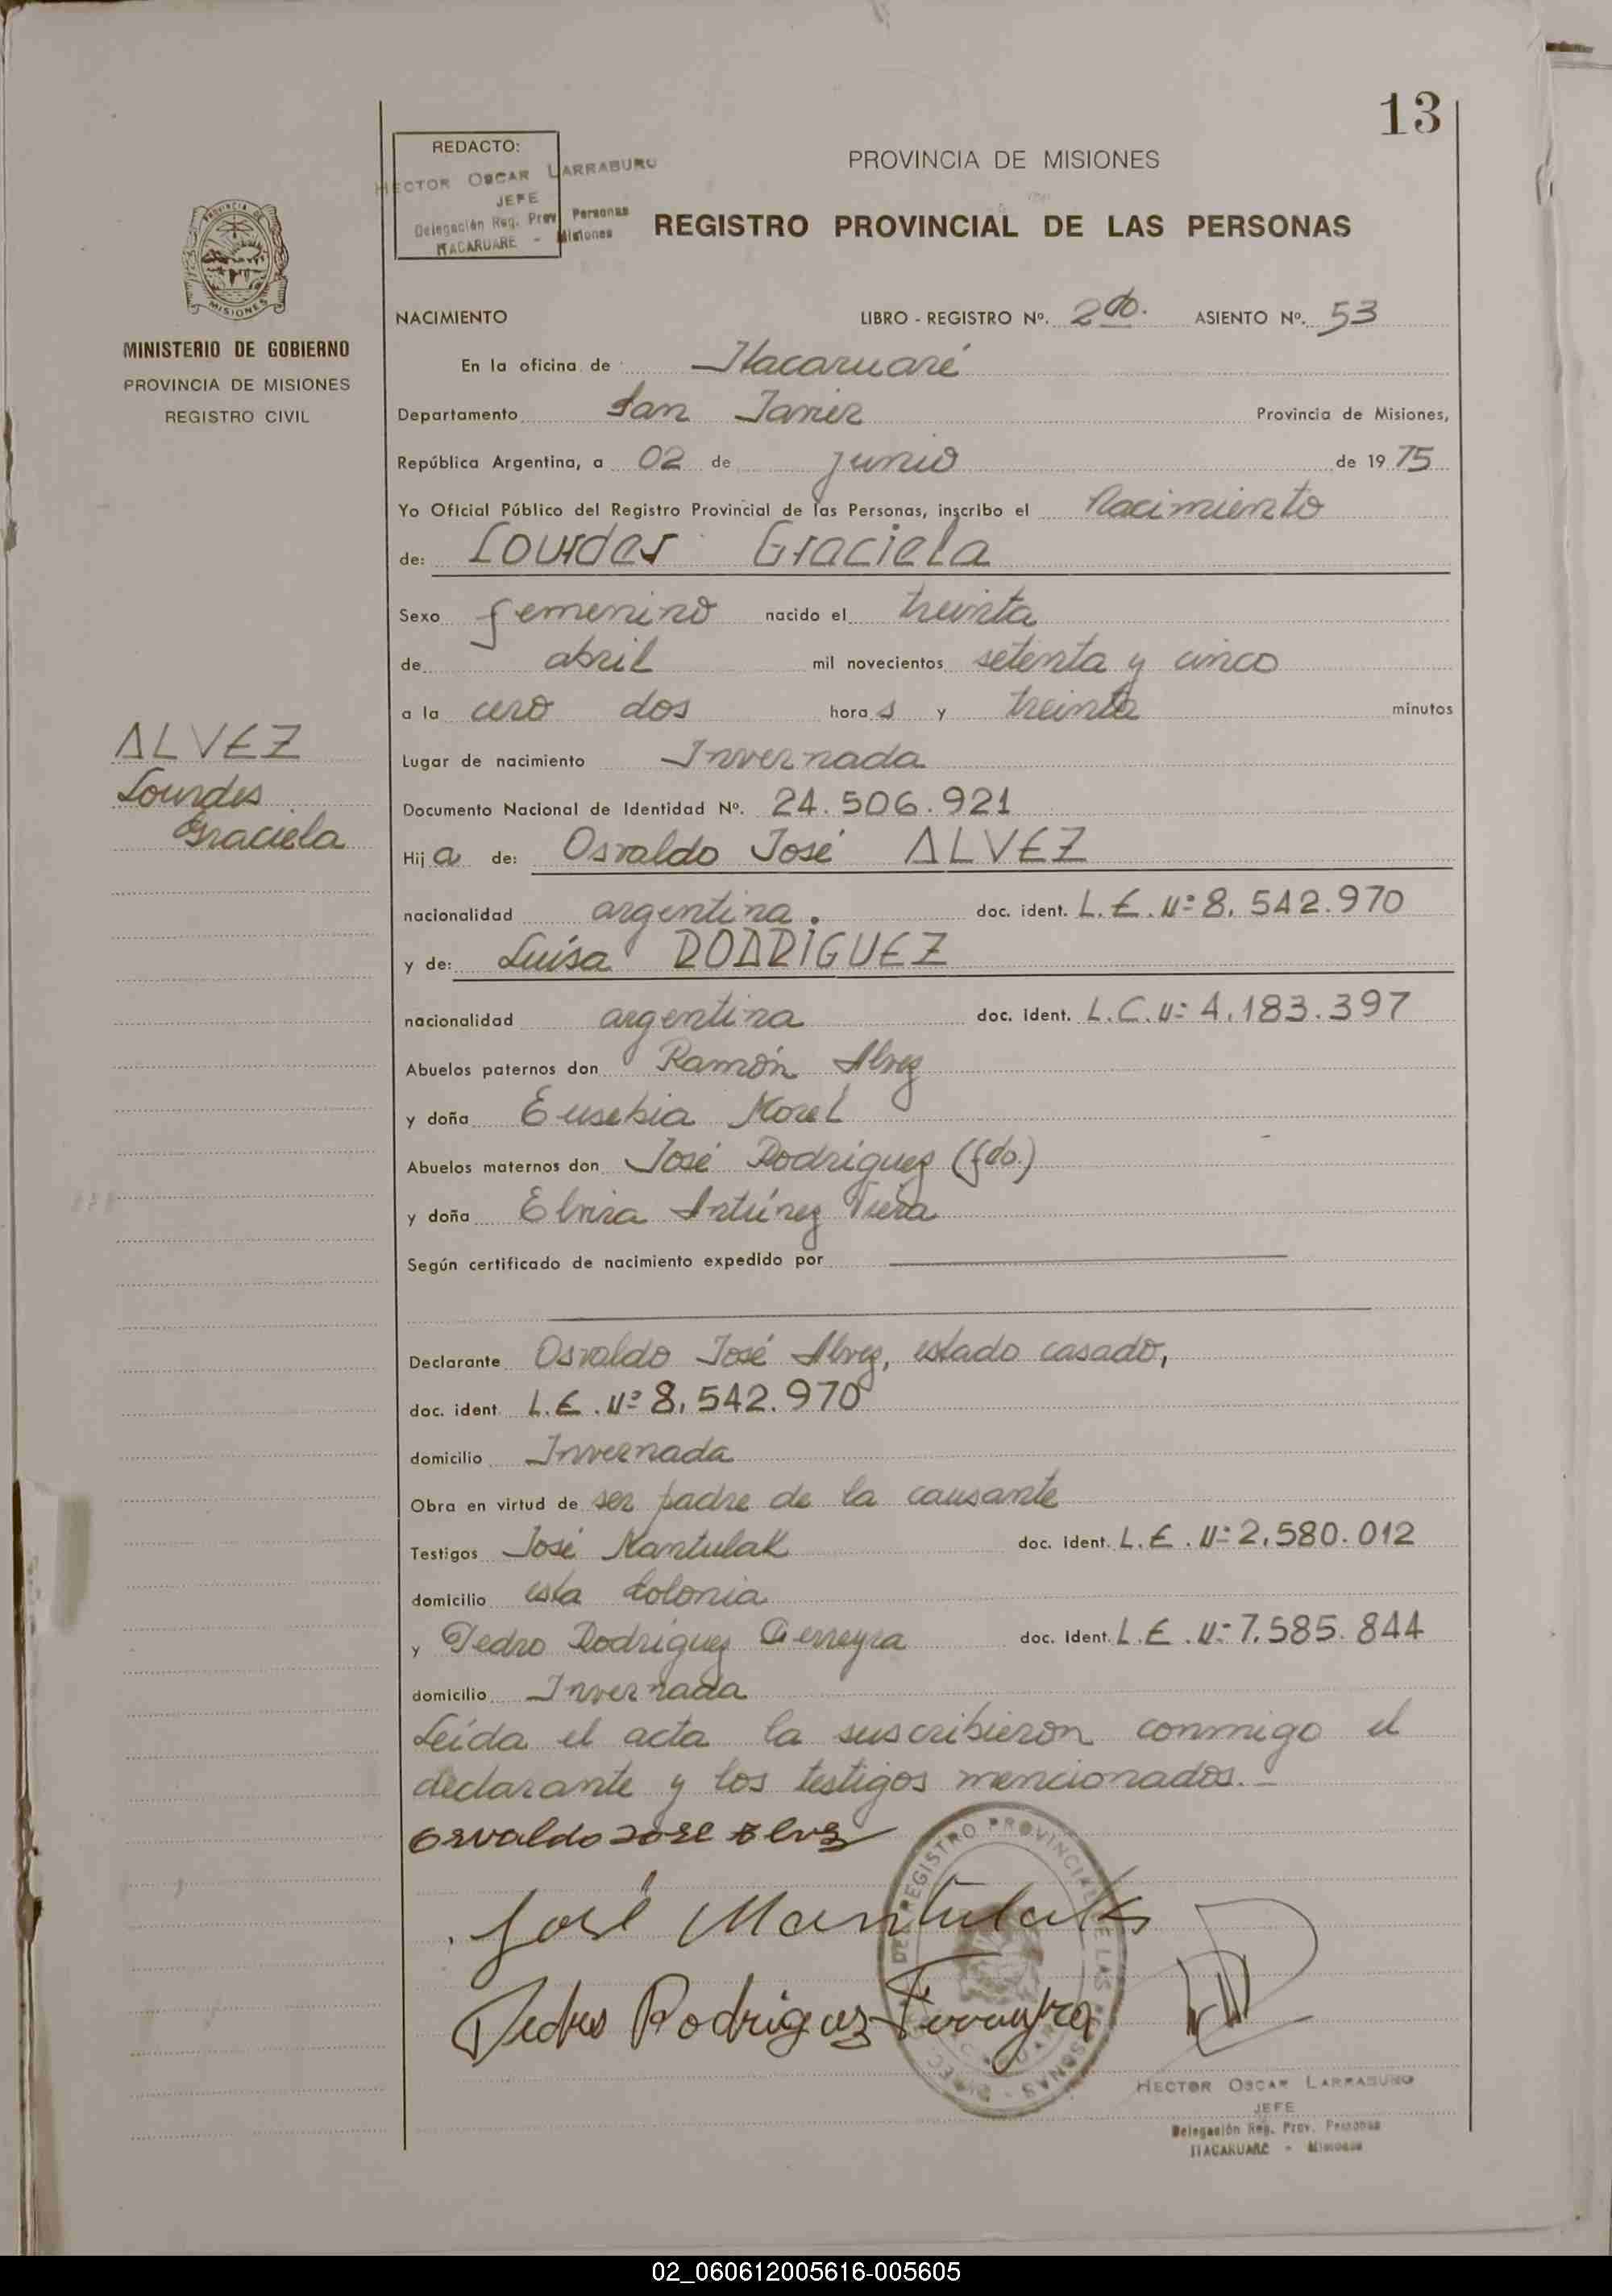 13
REDACTO:
HECTOR OSCAR LARRABURO
JEFE
Delegación Reg. Prov. Personas
ITACARUARE - Misiones
PROVINCIA DE MISIONES
REGISTRO PROVINCIAL DE LAS PERSONAS
PROVINCIA DE
MISIONES
MINISTERIO DE GOBIERNO
PROVINCIA DE MISIONES
REGISTRO CIVIL
NACIMIENTO LIBRO - REGISTRO Nº. 2do. ASIENTO Nº. 53
En la oficina de Itacaruaré
Departamento San Javier Provincia de Misiones,
República Argentina, a 02 de junio de 1975
Yo Oficial Público del Registro Provincial de las Personas, inscribo el Nacimiento
de: Lourdes Graciela
Sexo femenino nacido el treinta
de abril mil novecientos setenta y cinco
a la cero dos horas y treinta minutos
Lugar de nacimiento Invernada
Documento Nacional de Identidad Nº. 24.506.921
Hija de: Osvaldo José ALVEZ
nacionalidad argentina. doc. ident. L.E. Nº 8.542.970
y de: Luisa RODRIGUEZ
nacionalidad argentina doc. ident. L.C. Nº 4.183.397
Abuelos paternos don Ramón Alvez
y doña Eusebia Morel
Abuelos maternos don José Rodriguez (fdo.)
y doña Elvira Antúnez Viera
Según certificado de nacimiento expedido por
Declarante Osvaldo José Alvez, estado casado,
doc. ident. L.E. Nº 8.542.970
domicilio Invernada
Obra en virtud de ser padre de la causante
Testigos José Mantulak doc. ident. L.E. Nº 2.580.012
domicilio esta Colonia
y Pedro Rodriguez Ferreyra doc. ident. L.E. Nº 7.585.844
domicilio Invernada
Leída el acta la suscribieron conmigo el
declarante y los testigos mencionados.-
ALVEZ
Lourdes
Graciela
Osvaldo Jose Alvez
José Mantulak
Pedro Rodriguez Ferreyra
REGISTRO PROVINCIAL DE LAS PERSONAS
HECTOR OSCAR LARRABURO
JEFE
Delegación Reg. Prov. Personas
ITACARUARE - Misiones
02_060612005616-005605